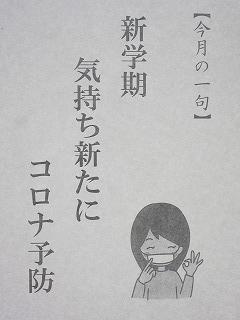 【今月の一句】
新学期
気持ち新たに
コロナ予防